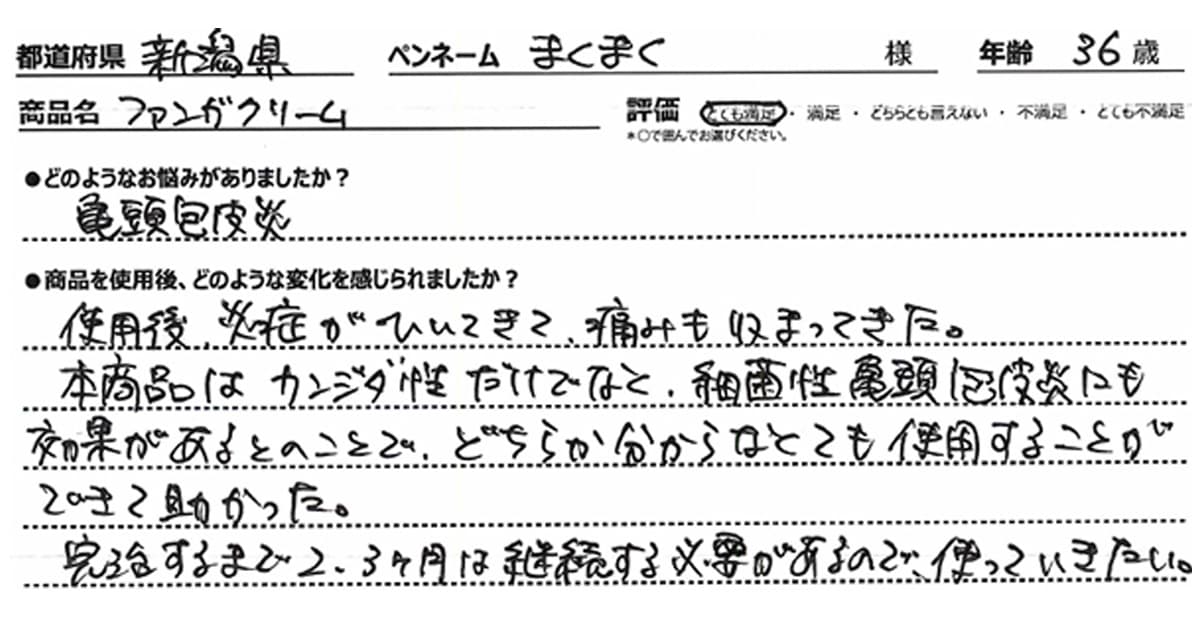 都道府県 新潟県 ペンネーム まくまく 様 年齢 36 歳
商品名 ファンガクリーム 評価 とても満足・満足・どちらとも言えない・不満足・とても不満足
*○で囲んでお選びください。
●どのようなお悩みがありましたか？
亀頭包皮炎
●商品を使用後、どのような変化を感じられましたか？
使用後、炎症がひいてきて、痛みも収まってきた。
本商品はカンジダ性だけでなく、細菌性亀頭包皮炎にも
効果があるとのことで、どちらか分からなくても使用することが
できて助かった。
完治するまで2、3ヶ月は継続する必要があるので、使っていきたい。